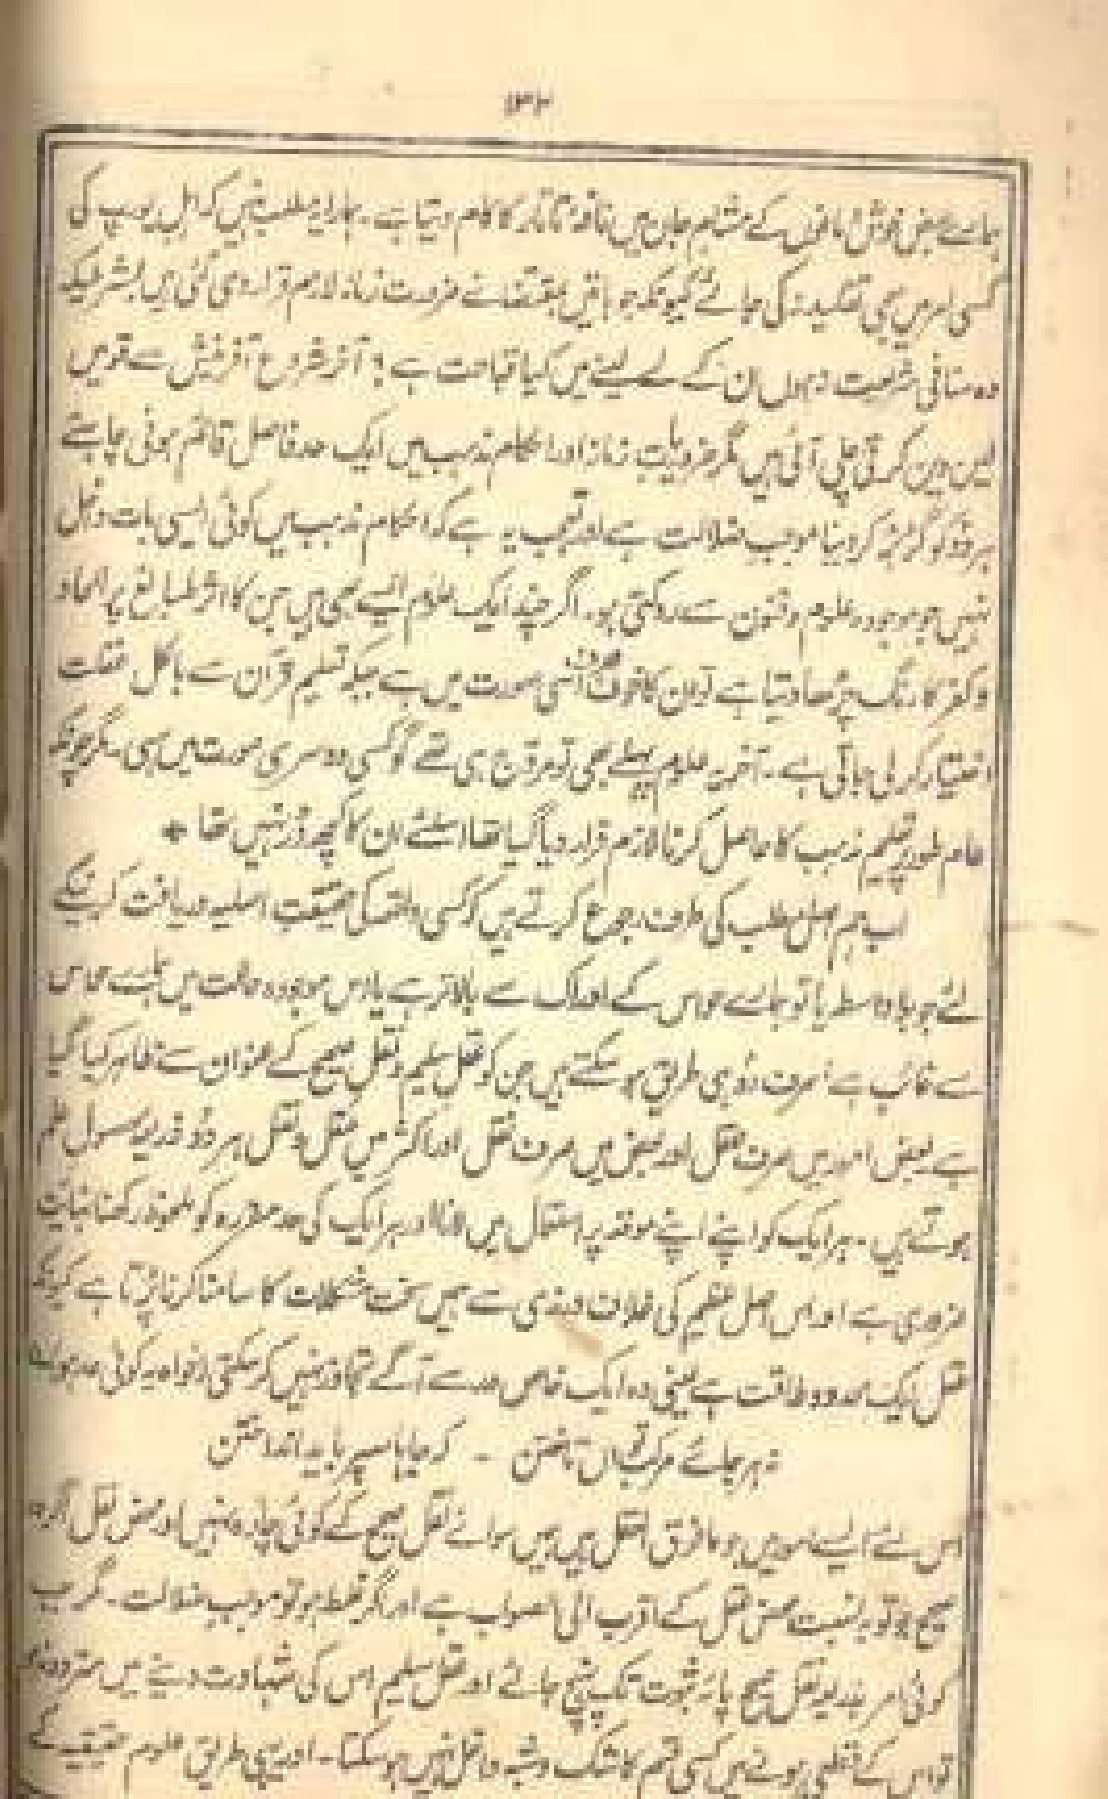 ۳۲
ہمارے بعض خوش مذاقوں کے مشام جان میں نافۂ تاتار کا کام دیتا ہے۔ ہمارا یہ مطلب نہیں کہ اہل یورپ کی
کسی امر میں بھی تقلید نہ کی جائے کیونکہ جو باتیں بمقتضائے ضرورت زمانہ لازم قرار دی گئی ہیں بشرطیکہ
وہ منافی شریعت نہ ہوں ان کے لے لینے میں کیا قباحت ہے؟ آخر شروع آفرینش سے قومیں
لین دین کرتی چلی آئی ہیں مگر ضروریات زمانہ اور احکام مذہب میں ایک حد فاصل قائم ہونی چاہئے
ہر دو کو گڑبڑ کر دینا موجب ضلالت ہے اور تعجب یہ ہے کہ احکام مذہب میں کوئی ایسی بات داخل
نہیں جو موجودہ علوم و فنون سے روکتی ہو۔ اگر چند ایک علوم ایسے بھی ہیں جن کا اثر طبائع پر الحاد
و کفر کا رنگ چڑھا دیتا ہے تو ان کا خوف صرف اسی صورت میں ہے جبکہ تعلیم قرآن سے بالکل غفلت
اختیار کر لی جاتی ہے۔ آخر یہ علوم پہلے بھی تو مروج ہی تھے گو کسی دوسری صورت میں سہی۔ مگر چونکہ
عام طور پر تعلیم مذہب کا حاصل کرنا لازم قرار دیا گیا تھا اسلئے ان کا کچھ ڈر نہیں تھا *
اب ہم اصل مطلب کی طرف رجوع کرتے ہیں کہ کسی واقعہ کی حقیقت اصلیہ دریافت کرنیکے
لئے جو بلا واسطہ یا تو ہمارے حواس کے ادراک سے بالاتر ہے یا اس موجودہ حالت میں ہمارے حواس
سے غائب ہے صرف دو ہی طریق ہو سکتے ہیں جن کو عقل سلیم و نقل صحیح کے عنوان سے ظاہر کیا گیا
ہے بعض امور میں صرف عقل اور بعض میں صرف نقل اور اکثر میں عقل و نقل ہر دو ذریعہ حصول علم
ہوتے ہیں۔ ہر ایک کو اپنے اپنے موقعہ پر استعمال میں لانا اور ہر ایک کی حد مقررہ کو ملحوظ رکھنا نہایت
ضروری ہے اور اس اصل عظیم کی خلاف ورزی سے ہمیں سخت مشکلات کا سامنا کرنا پڑتا ہے کیونکہ
عقل ایک محدود طاقت ہے یعنی وہ ایک خاص حد سے آگے تجاوز نہیں کر سکتی خواہ یہ کوئی حد ہو
نہ ہر جائے مرکب تواں تاختن ۔ کہ جاہا سپر باید انداختن
اس لئے ایسے امور میں جو مافوق العقل ہیں ہمیں سوائے نقل صحیح کے کوئی چارہ نہیں اور محض نقل اگر وہ
صحیح ہو تو بہ نسبت محض عقل کے اقرب الی الصواب ہے اور اگر غلط ہو تو موجب ضلالت۔ مگر جب
کوئی امر بذریعہ نقل صحیح پایۂ ثبوت تک پہنچ جائے اور عقل سلیم اس کی شہادت دینے میں متردد نہ ہو
تو اس کے قطعی ہونے میں کسی قسم کا شک و شبہ داخل نہیں ہو سکتا۔ اور یہی طریق علوم حقیقیہ کے